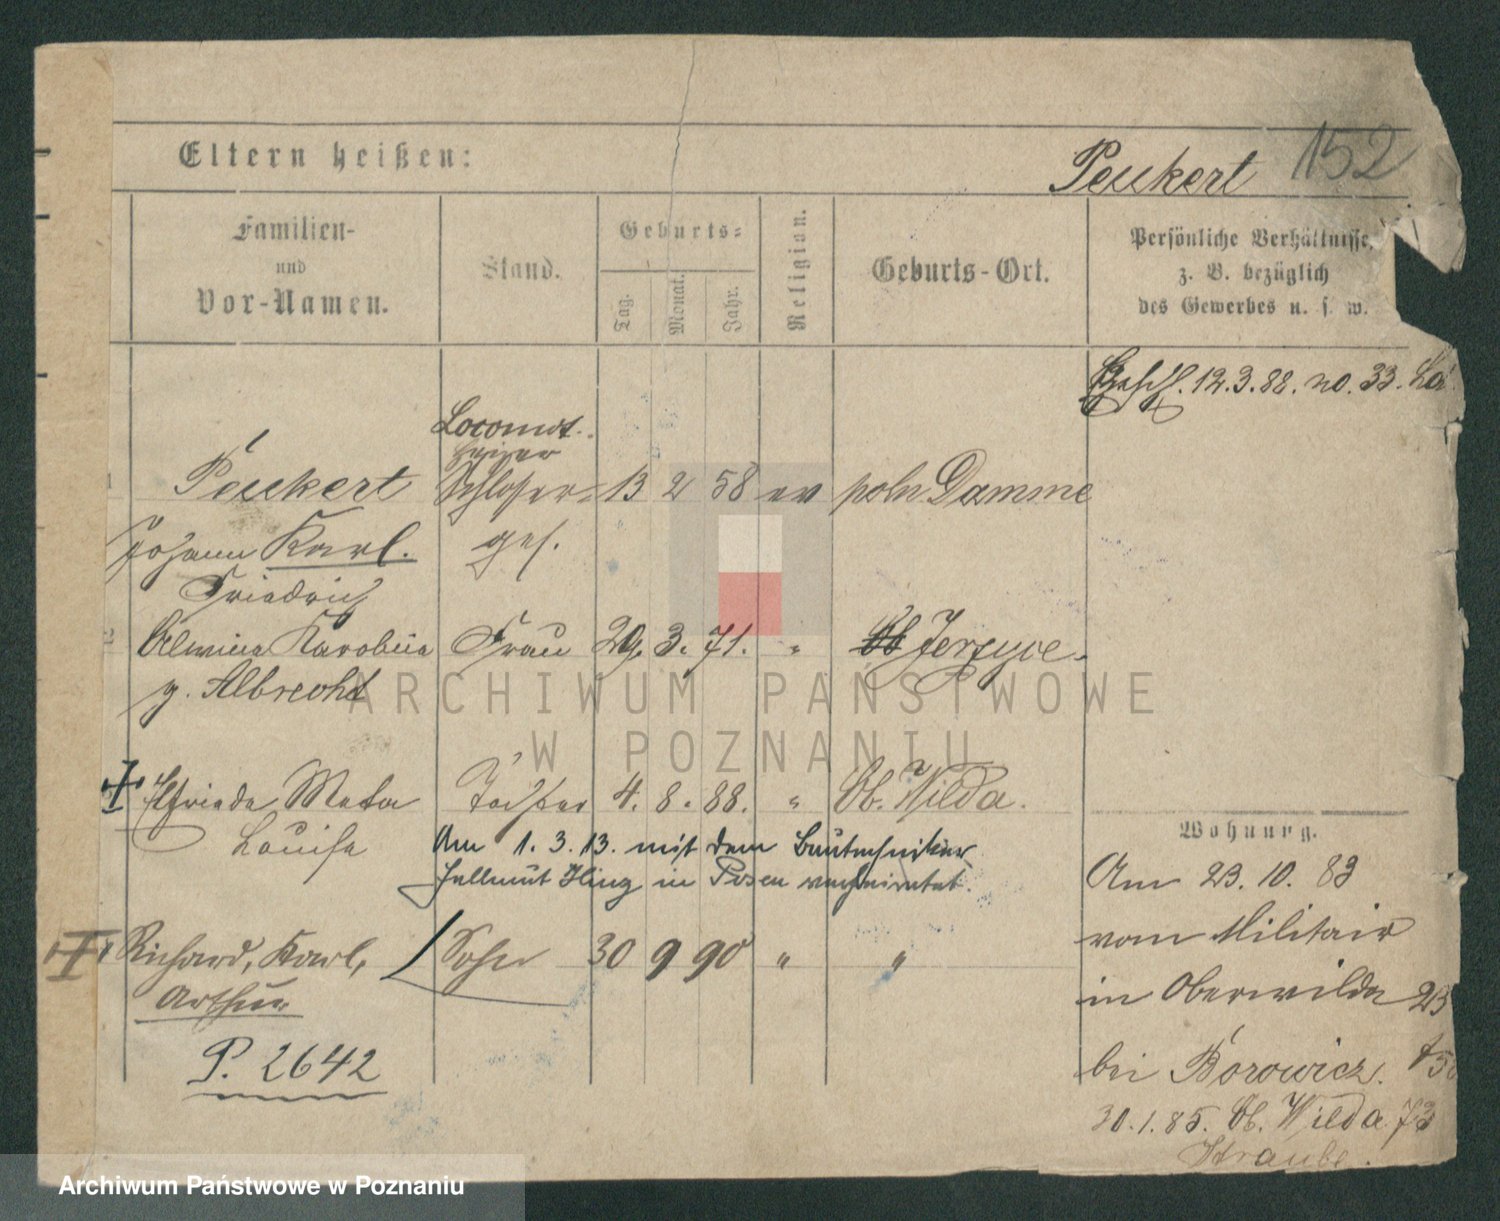 152
Eltern heißen:
Peukert
Familien-
und
Vor-Namen.
Stand.
Geburts-
Tag.
Monat.
Jahr.
Religion.
Geburts-Ort.
Persönliche Verhältnisse,
z. B. bezüglich
des Gewerbes u. s. w.
12.3.88. no. 33.
Locomot.
heizer
Peukert Schlosser- 13 2 58 ev poln Damme
Johann Karl. ges.
Friedrich
2 Alwine Karoline Frau 29. 3. 71. " Jerzyce.
g. Albrecht
Elfriede Meta Tochter 4. 8. 88. " Ob. Wilda.
Louise
Am 1. 3. 13. mit dem Bautechniker
Hellmut Illing in Posen verheiratet.
Richard, Karl, Sohn 30 9 90 " "
Arthur
P. 2642
Wohnung.
Am 23. 10. 83
vom Militair
in Oberwilda 23
bei Borowicz.
30.1.85. Ob. Wilda 73
Straube.
ARCHIWUM PAŃSTWOWE
W POZNANIU
Archiwum Państwowe w Poznaniu